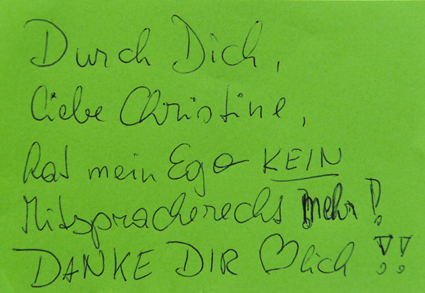 Durch Dich,
liebe Christine,
hat mein Ego KEIN
Mitspracherecht mehr!
DANKE DIR ♡lich !!